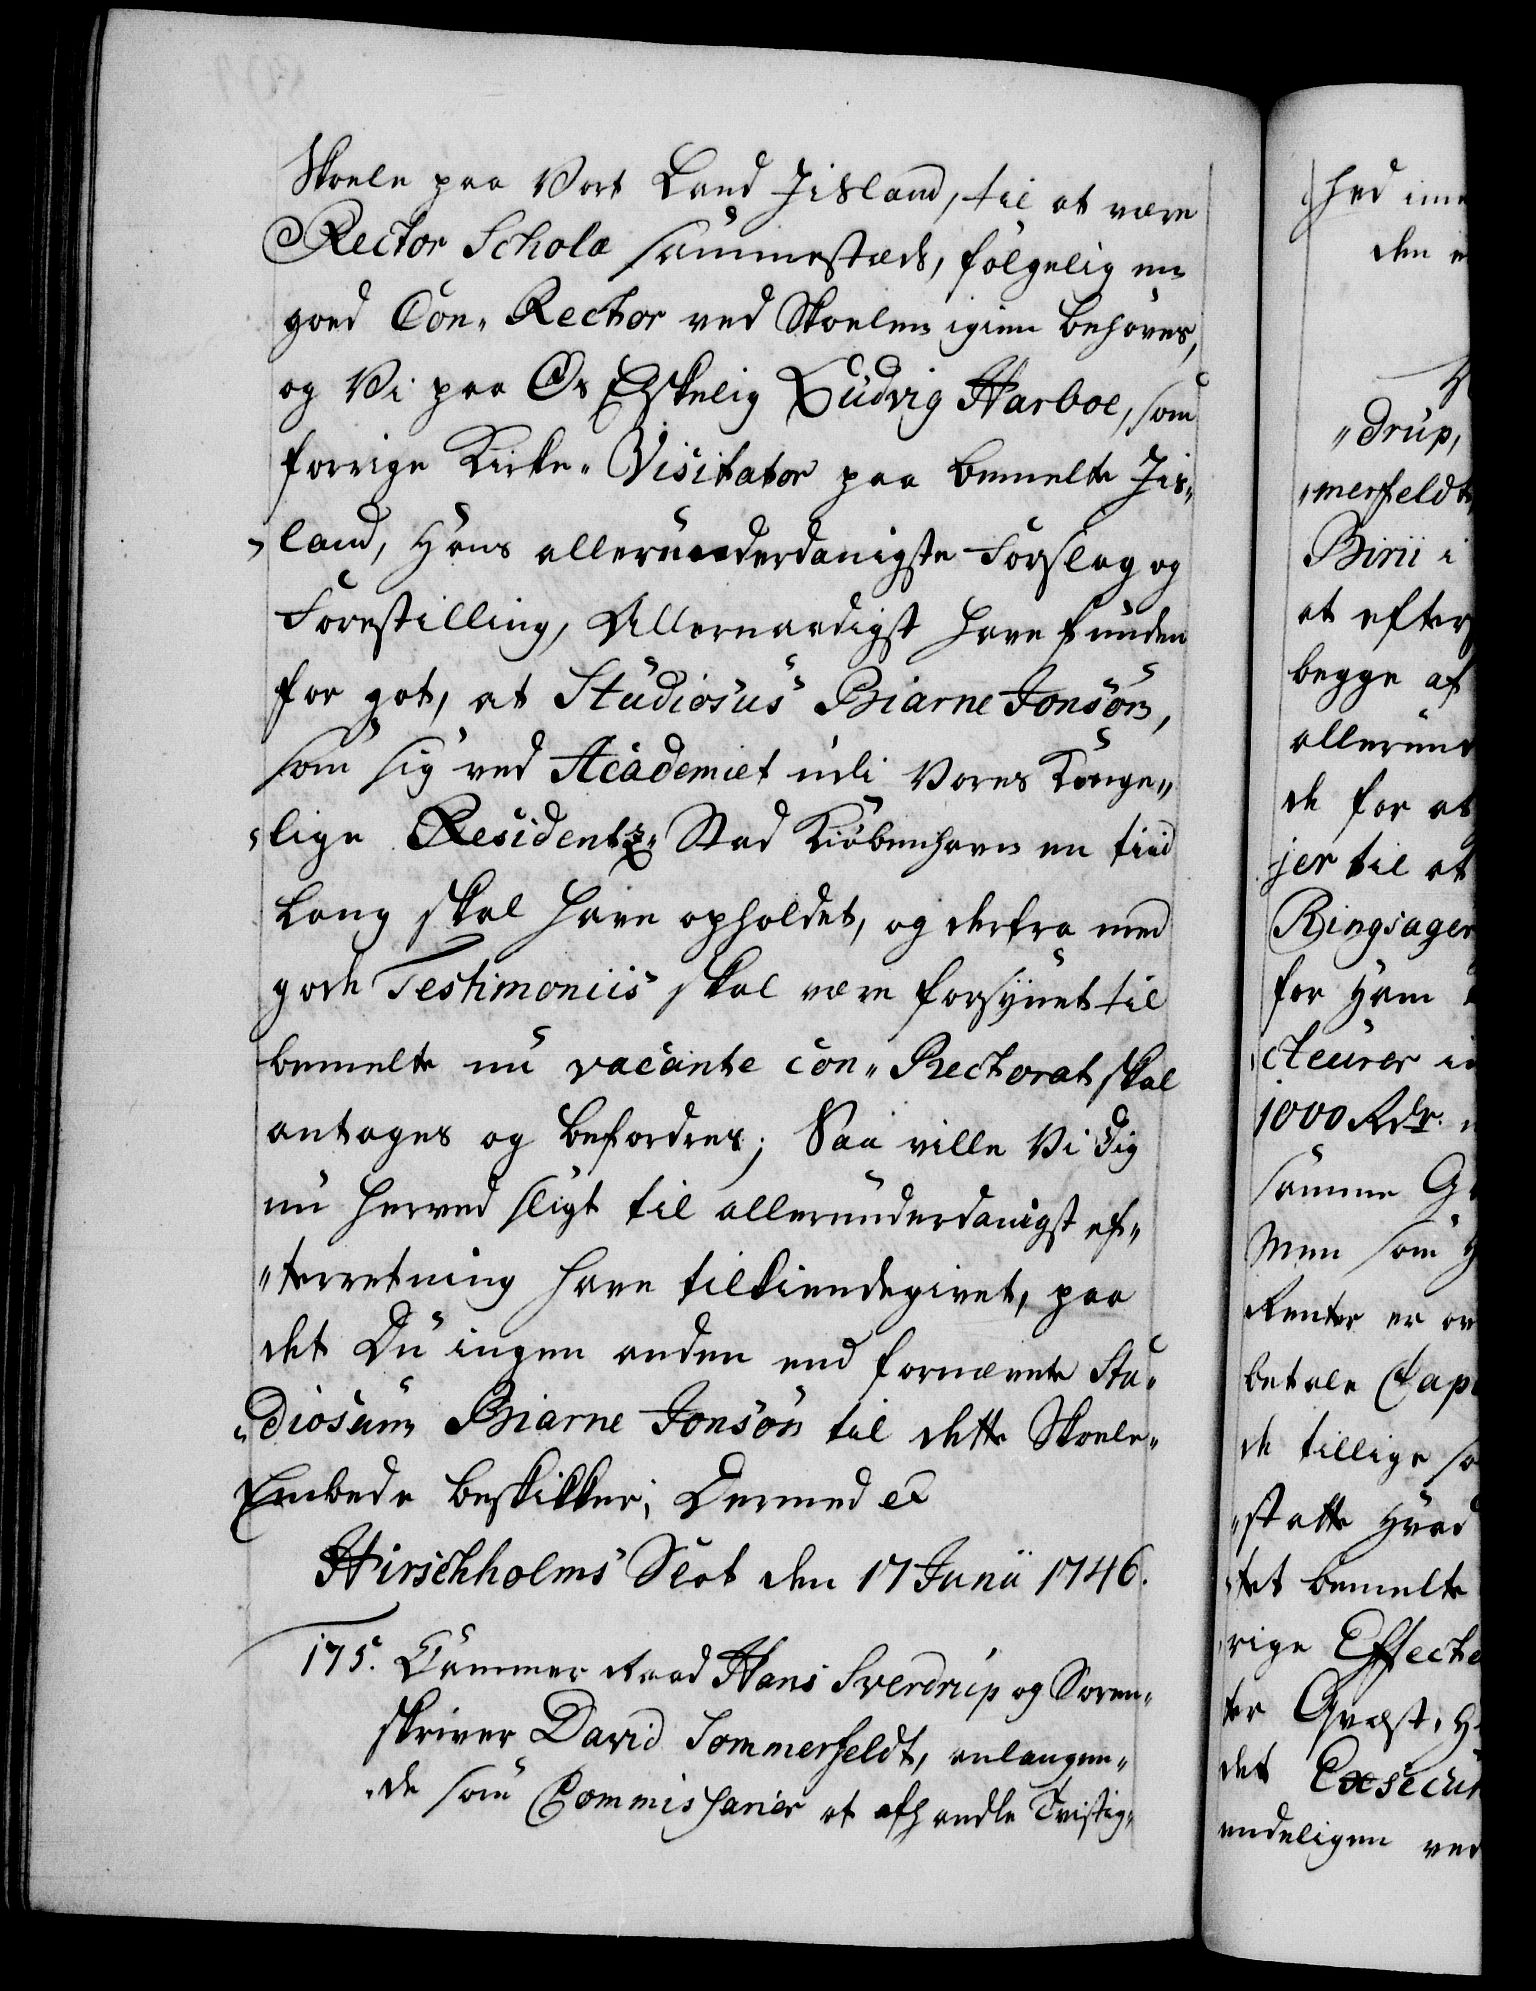 Skoele paa Vort Land Jisland, til at være
Rector Scholæ sammestæds, følgelig en
goed Con„ Rector ved Skoelen igien behøves,
og Vi paa Os Elskelig Ludvig Harboe, som
forrige Kirke„ Visitator paa bemelte Jis„
„land, Hans allerunderdanigste Forslag og
Forestilling, Allernaadigst have funden
for got, at Studiosus Biarne Jonsøn,
som sig ved Academiet udi Vores Konge„
„lige Residentz„ Stad Kiøbenhavn en tiid
lang skal have opholdet, og derfra med
gode Testimoniis skal være forsÿnet til
bemelte nu vacante Con„ Rectorat skal
antages og befordres; Saa ville Vi dig
nu herved sligt til allerunderdanigst ef„
„terretning have tilkiendegivet, paa
det Du ingen anden end fornævnte Stu„
„diosum Biarne Jonsøn til dette Skoele„
Embede beskikker; Dermed &
Hirschholms Slot den 17 Junii 1746.
175. Cammer Raad Hans Sverdrup og Soren„
skriver David Sommerfeldt, anlangen„
„de som Commissarier at afhandle Tvistig„
hed ime
den e
„drup,
„merfeldt
Birii i
at efter
begge af
allerund
de for at
jer til at
Ringsager
for Ham
cteurer i
1000 Rdr.
samme G
Men som H
Renter er
betale Cap
de tillige so
„statte Hvad
„tet bemelte
„rige Effecte
ter Qvæst. H
det Exsecut
endeligen ved